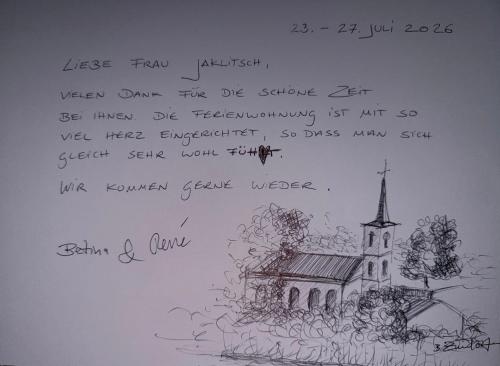 23. - 27. JULI 2026
LIEBE FRAU JAKLITSCH,
VIELEN DANK FÜR DIE SCHÖNE ZEIT
BEI IHNEN. DIE FERIENWOHNUNG IST MIT SO
VIEL HERZ EINGERICHTET, SO DASS MAN SICH
GLEICH SEHR WOHL
WIR KOMMEN GERNE WIEDER.
Betina & René